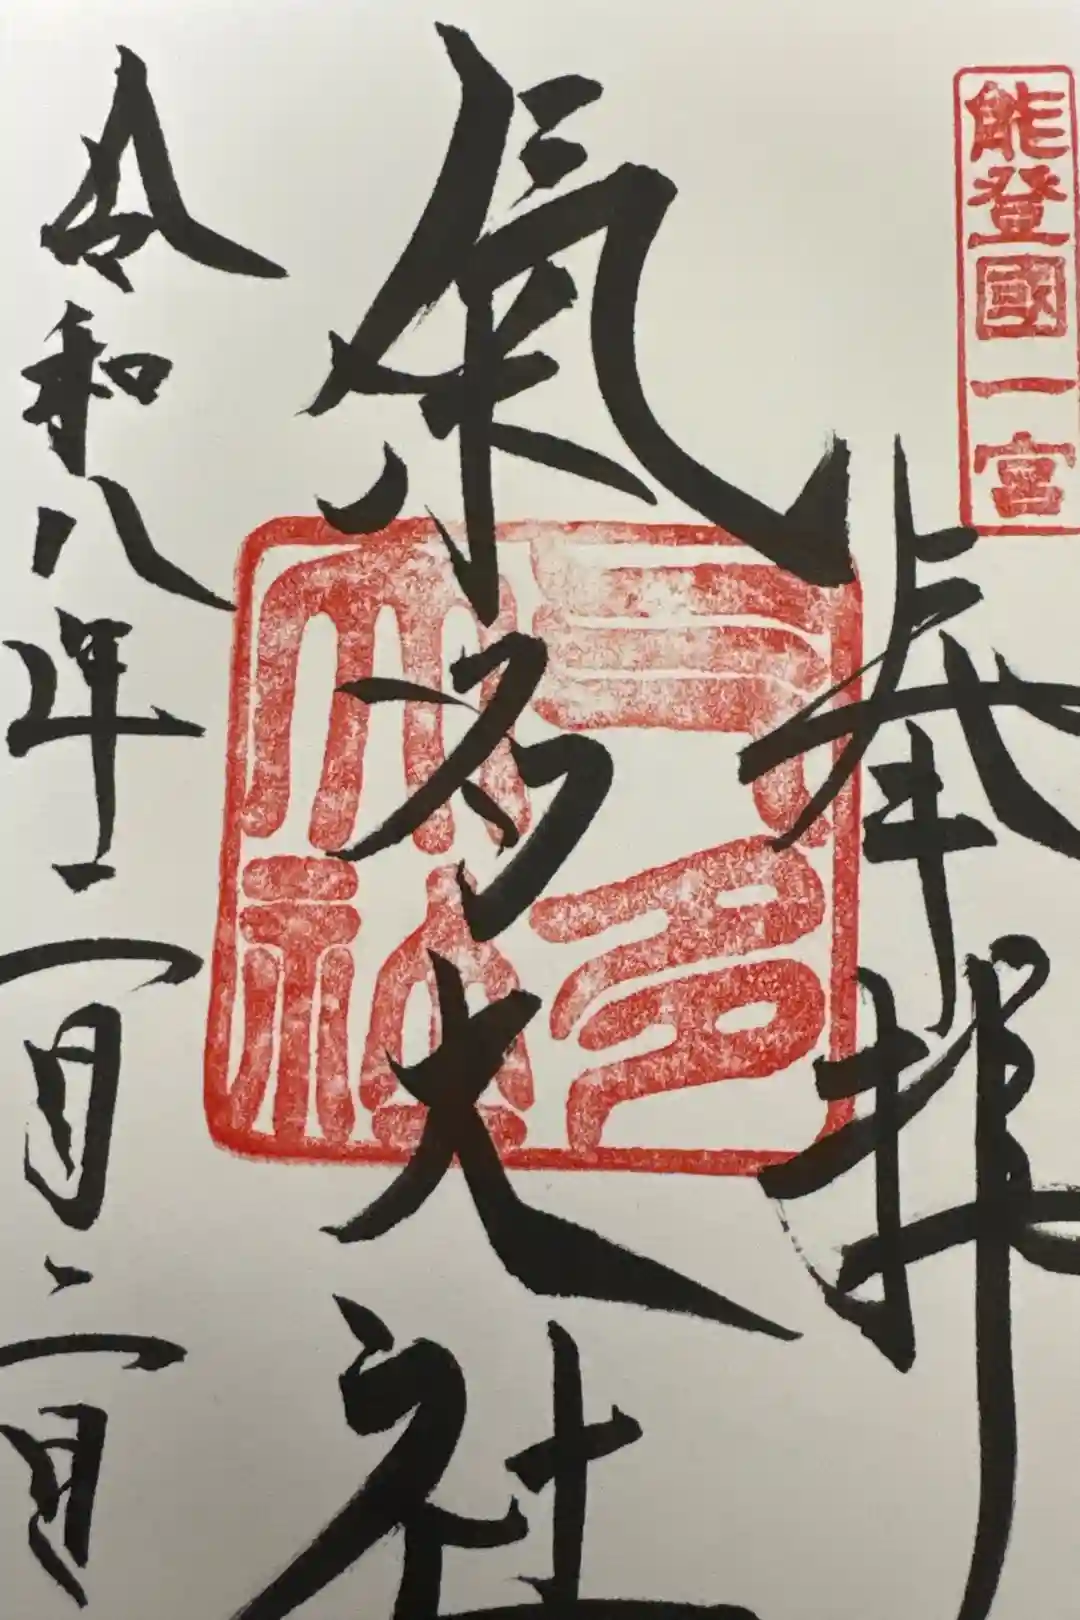 能登國一宮
奉拝
氣多大社
气多大社
令和八年二月二日